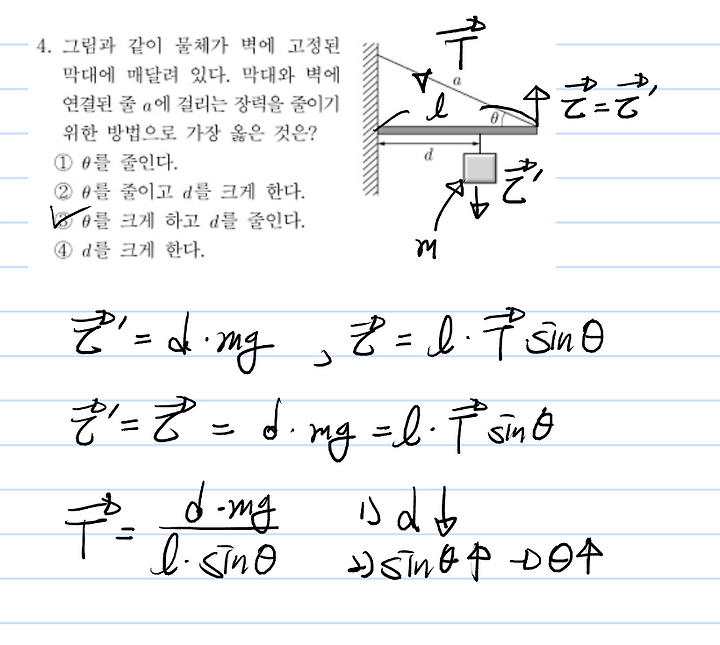 4. 그림과 같이 물체가 벽에 고정된
막대에 매달려 있다. 막대와 벽에
연결된 줄 a에 걸리는 장력을 줄이기
위한 방법으로 가장 옳은 것은?
① θ를 줄인다.
② θ를 줄이고 d를 크게 한다.
③ θ를 크게 하고 d를 줄인다.
④ d를 크게 한다.
T⃗
a
l
θ
τ⃗ = τ⃗'
d
τ⃗'
m
τ⃗' = d · mg , τ⃗ = l · T⃗ sinθ
τ⃗' = τ⃗ = d · mg = l · T⃗ sinθ
T⃗ = d · mg / l · sinθ
1) d ↓
2) sinθ ↑ → θ ↑